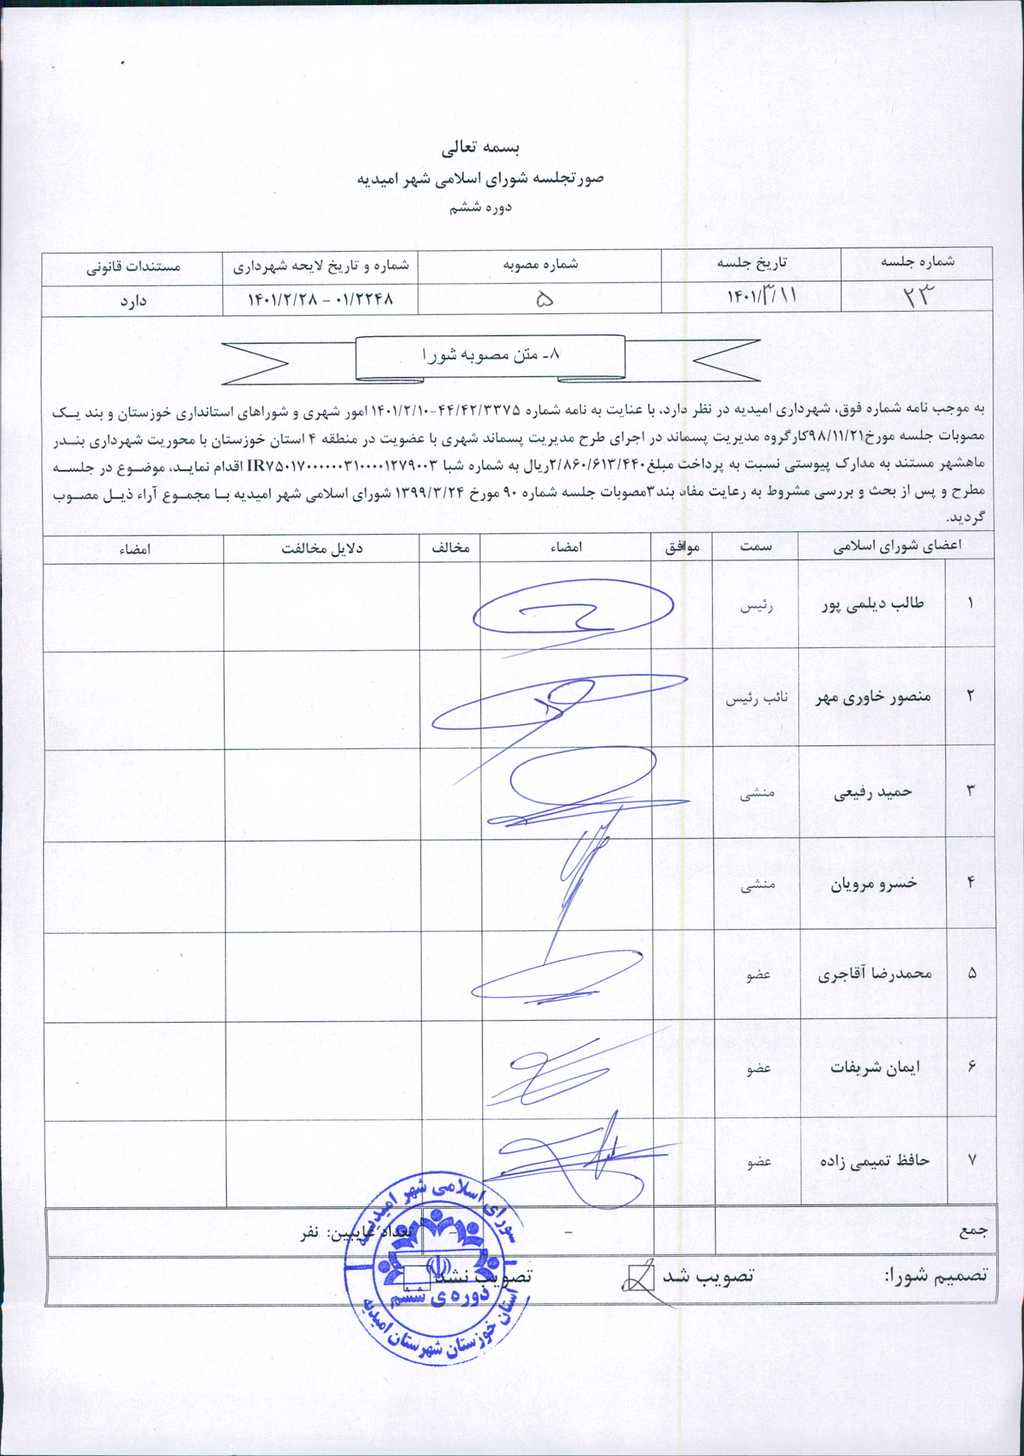 بسمه تعالی
صورتجلسه شورای اسلامی شهر امیدیه
دوره ششم
شماره جلسه تاریخ جلسه شماره مصوبه شماره و تاریخ لایحه شهرداری مستندات قانونی
۲۳ ۱۴۰۱/۳/۱۱ ۵ ۰۱/۲۲۴۸ – ۱۴۰۱/۲/۲۸ دارد
۸- متن مصوبه شورا
به موجب نامه شماره فوق، شهرداری امیدیه در نظر دارد، با عنایت به نامه شماره ۴۴/۴۲/۳۳۷۵-۱۴۰۱/۲/۱۰ امور شهری و شوراهای استانداری خوزستان و بند یک
مصوبات جلسه مورخ۹۸/۱۱/۲۱کارگروه مدیریت پسماند در اجرای طرح مدیریت پسماند شهری با عضویت در منطقه ۴ استان خوزستان با محوریت شهرداری بندر
ماهشهر مستند به مدارک پیوستی نسبت به پرداخت مبلغ۲/۸۶۰/۶۱۳/۴۴۰ریال به شماره شبا IR۷۵۰۱۷۰۰۰۰۰۰۳۱۰۰۰۰۱۲۷۹۰۰۳ اقدام نماید، موضوع در جلسه
مطرح و پس از بحث و بررسی مشروط به رعایت مفاد بند۳مصوبات جلسه شماره ۹۰ مورخ ۱۳۹۹/۳/۲۴ شورای اسلامی شهر امیدیه با مجموع آراء ذیل مصوب
گردید.
اعضای شورای اسلامی سمت موافق امضاء مخالف دلایل مخالفت امضاء
۱ طالب دیلمی پور رئیس
۲ منصور خاوری مهر نائب رئیس
۳ حمید رفیعی منشی
۴ خسرو مرویان منشی
۵ محمدرضا آقاجری عضو
۶ ایمان شریفات عضو
۷ حافظ تمیمی زاده عضو
جمع - - تعداد غایبین: نفر
تصمیم شورا: تصویب شد تصویب نشد
شورای اسلامی شهر امیدیه
دوره ی ششم
استان خوزستان شهرستان امیدیه